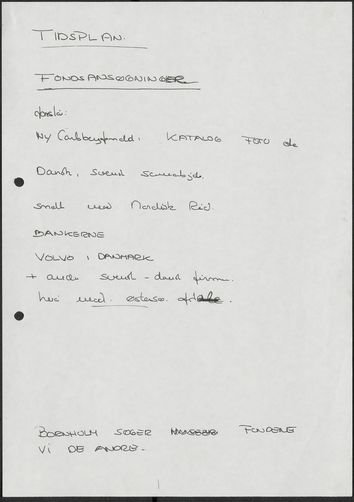 TIDSPLAN.
FONDSANSØGNINGER
Ny Carlsbergfondet: KATALOG FOTO de
Dansk, svensk samarbejde
med Nordisk Råd.
BANKERNE
VOLVO I DANMARK
+ anden svensk - dansk firma.
BORNHOLM SØGER FONDENE
VI DE ANDRE.